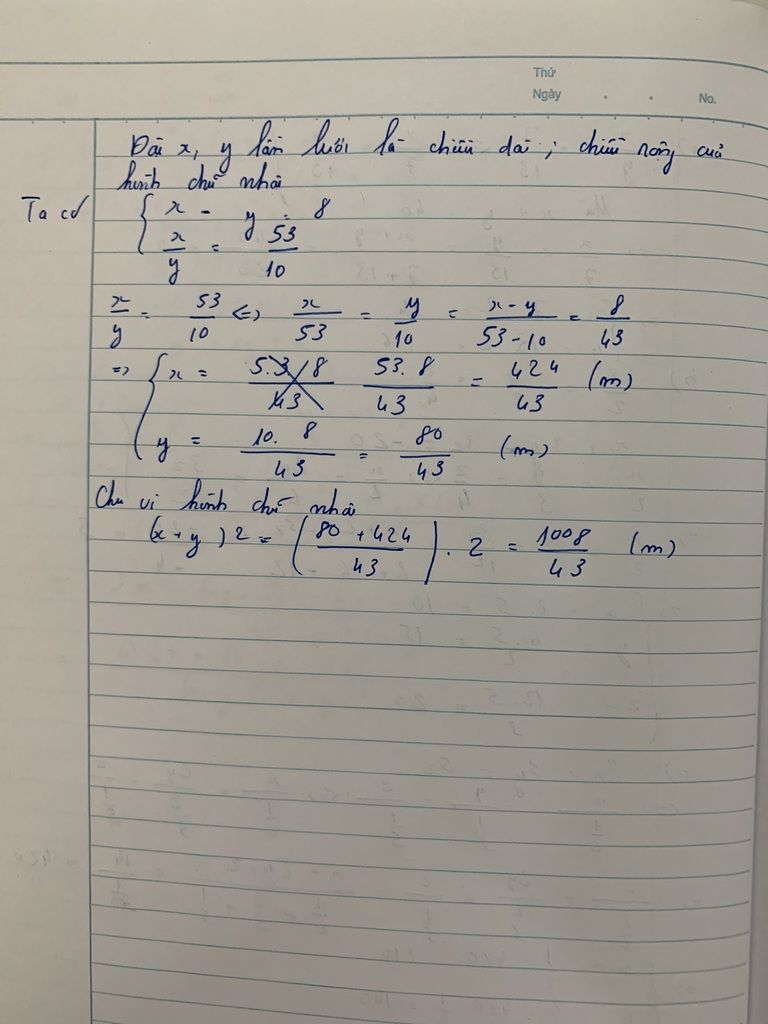 Thứ
Ngày . . No.
Đặt x, y lần lượt là chiều dài ; chiều rộng của
hình chữ nhật
Ta có { x - y = 8
x/y = 53/10
x/y = 53/10 <=> x/53 = y/10 = x-y/53-10 = 8/43
=> { x = 53.8/43 = 424/43 (m)
y = 10. 8/43 = 80/43 (m)
Chu vi hình chữ nhật
(x+y)2 = (80+424/43) . 2 = 1008/43 (m)